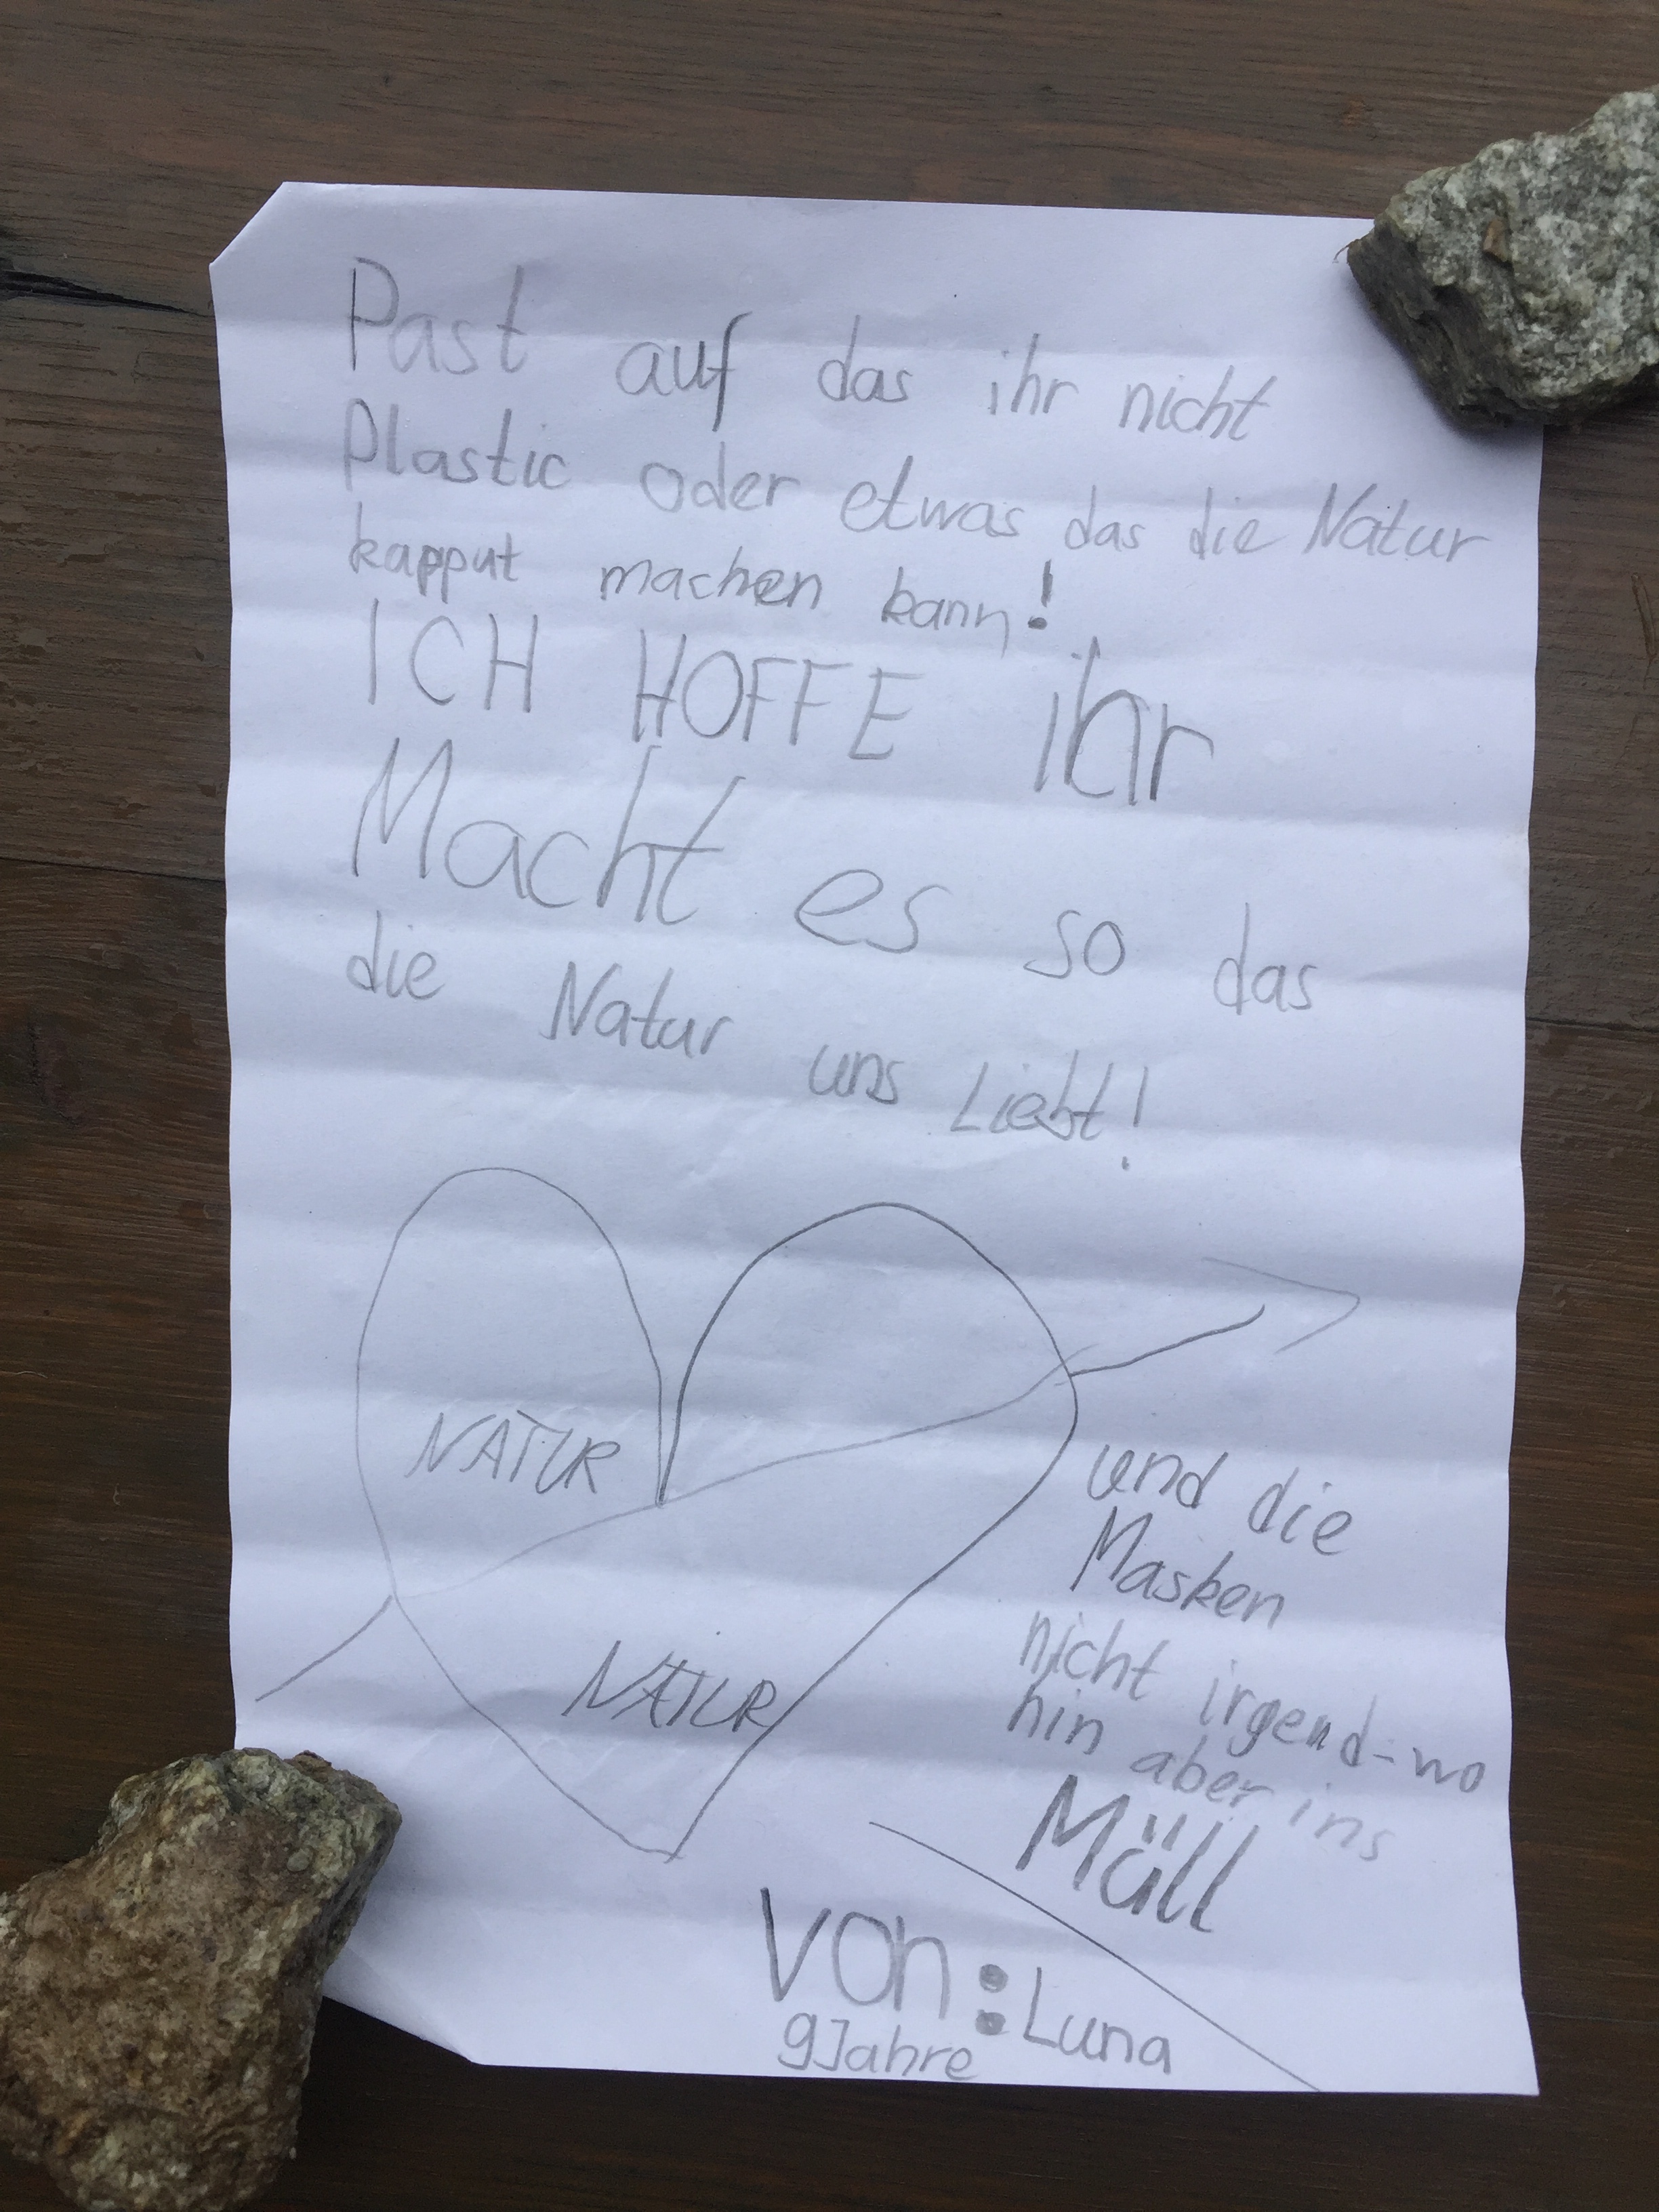 Past auf das ihr nicht
Plastic oder etwas das die Natur
kapput machen kann!
ICH HOFFE ihr
Macht es so das
die Natur uns Liebt!
NATUR
NATUR
und die
Masken
nicht irgend-wo
hin aber ins
Müll
von: Luna
9Jahre